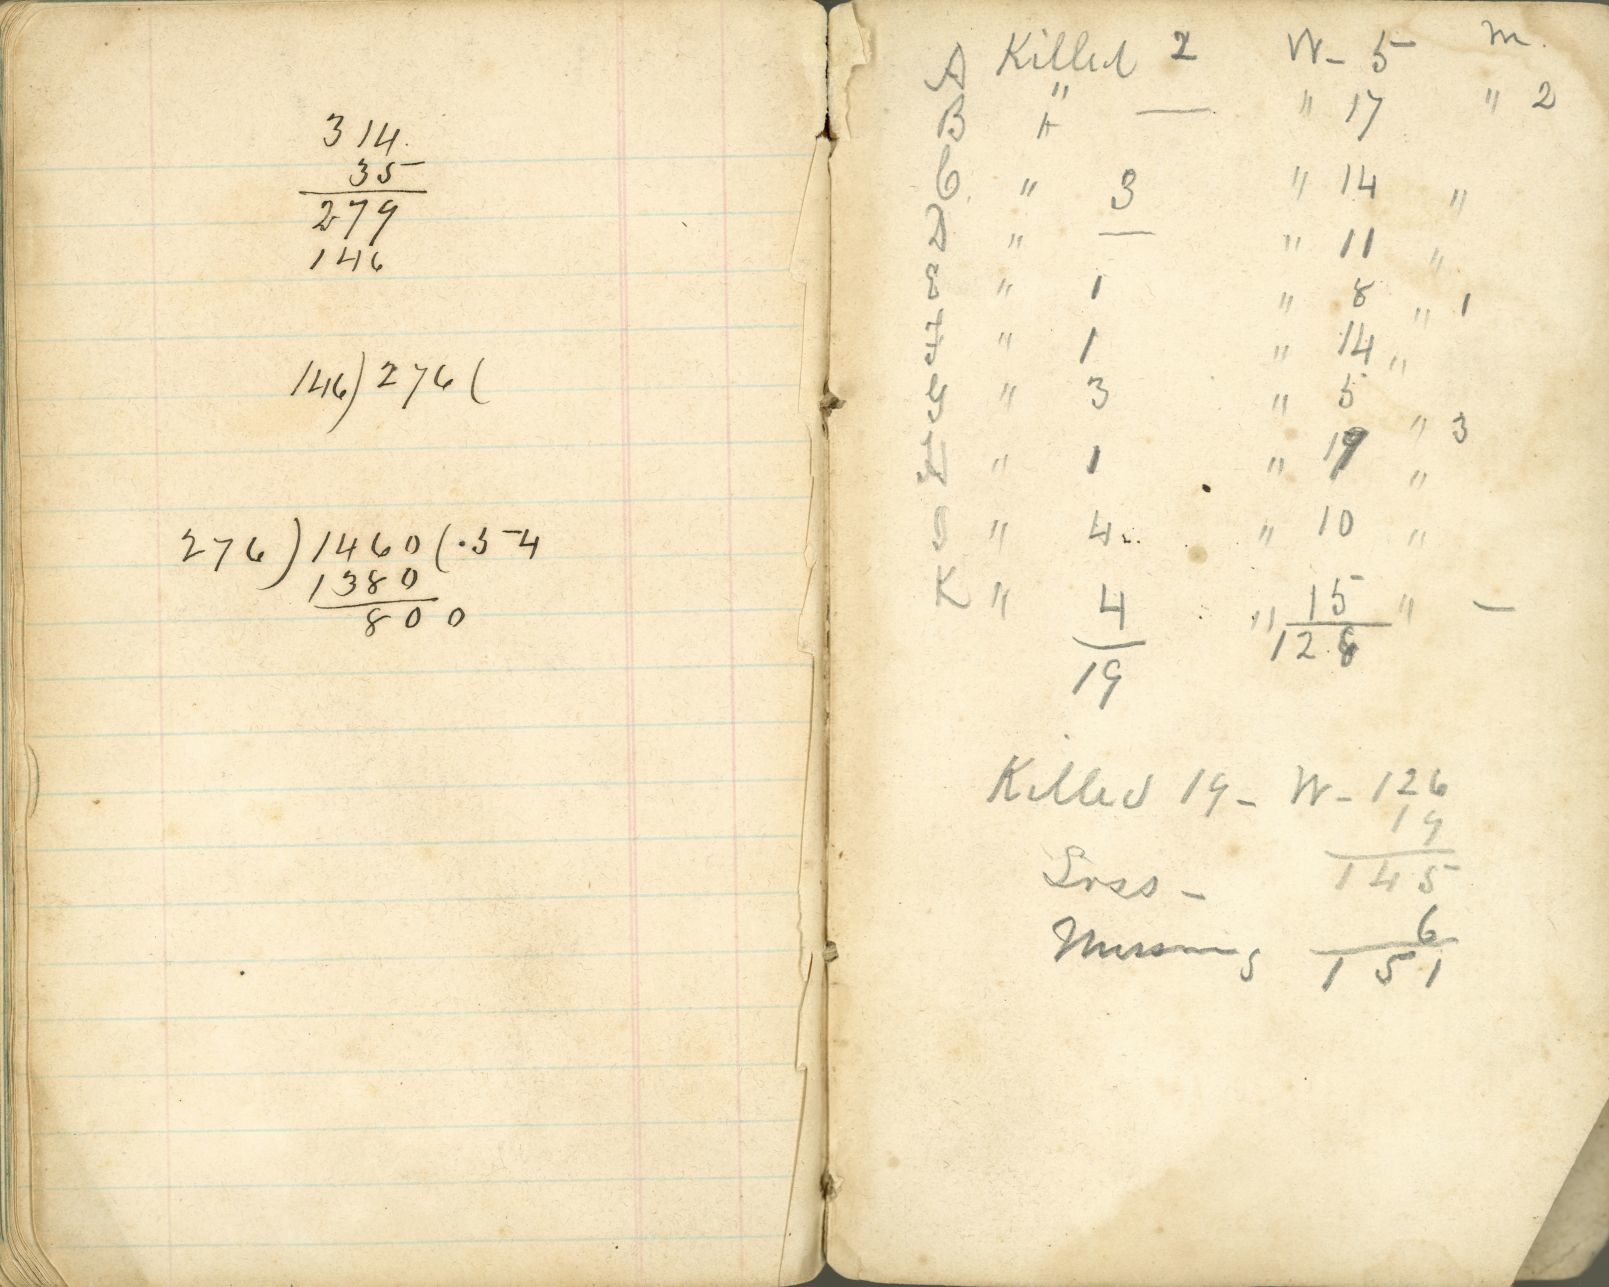 314.
35
279
146
146) 276 (
276) 1460 (.54
1380
800
A Killed 2 W- 5 M.
B " — " 17 " 2
C " 3 " 14 "
D " — " 11 "
E " 1 " 8 " 1
F " 1 " 14 "
G " 3 " 5 " 3
H " 1 " "
I " 4 " 10 "
K " 4 " 15 " —
19 128
Killed 19 - W- 126
19
Loss - 145
Missing 6
151